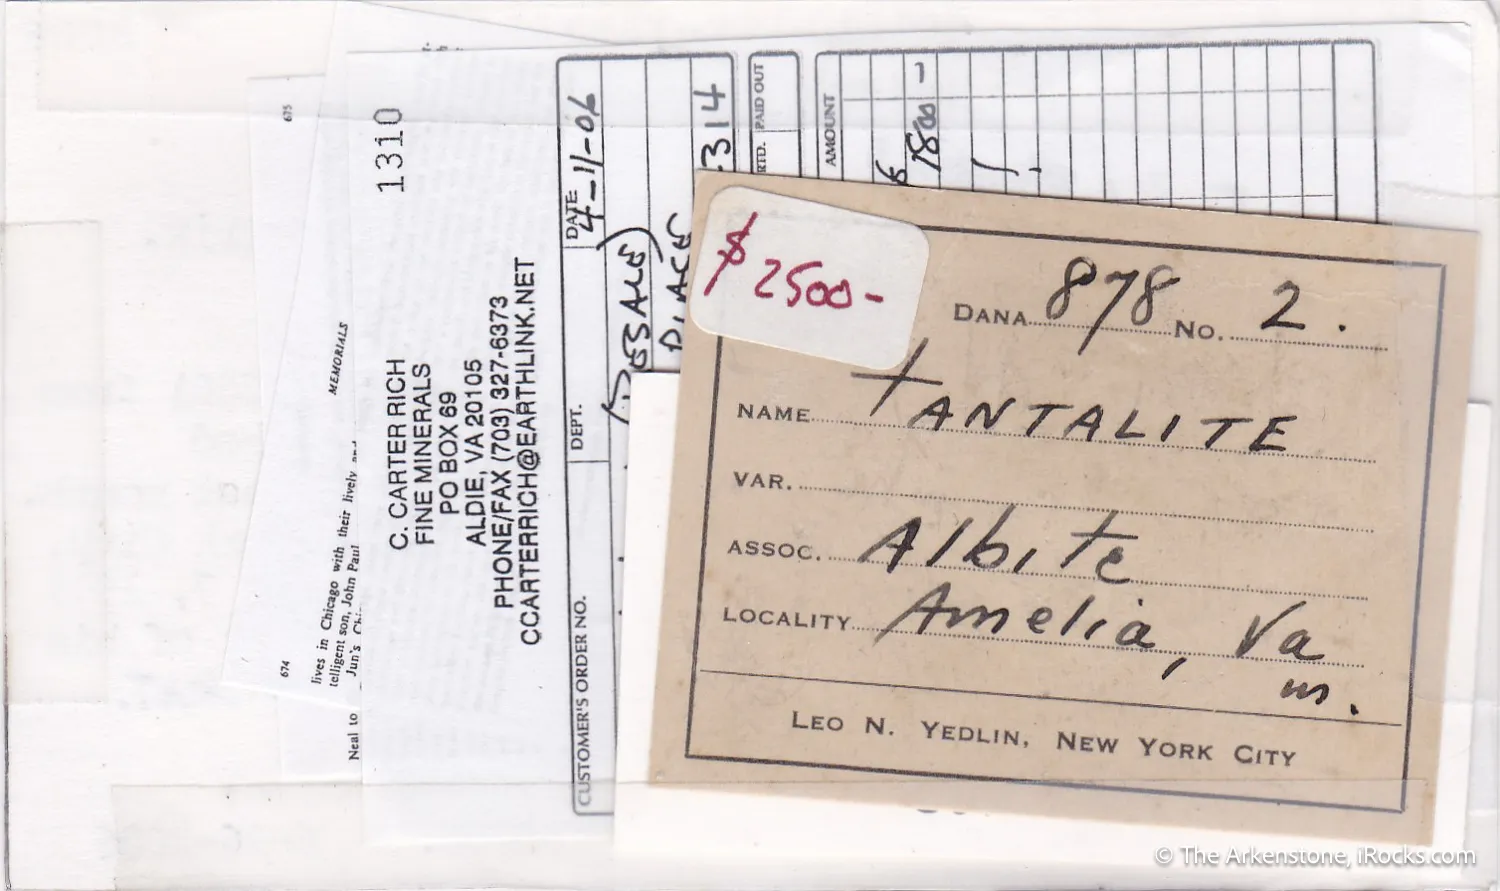 675
674
MEMORIALS
lives in Chicago with their lively
telligent son, John Paul
Jun's
Neal to
1310
C. CARTER RICH
FINE MINERALS
PO BOX 69
ALDIE, VA 20105
PHONE/FAX (703) 327-6373
CCARTERRICH@EARTHLINK.NET
CUSTOMER'S ORDER NO.
DEPT.
DATE
4-11-06
314
RTD.
PAID OUT
AMOUNT
1800 -
$ 2500-
DANA 878 No. 2.
NAME TANTALITE
VAR.
ASSOC. Albite
LOCALITY Amelia, Va
m.
LEO N. YEDLIN, NEW YORK CITY
© The Arkenstone, iRocks.com